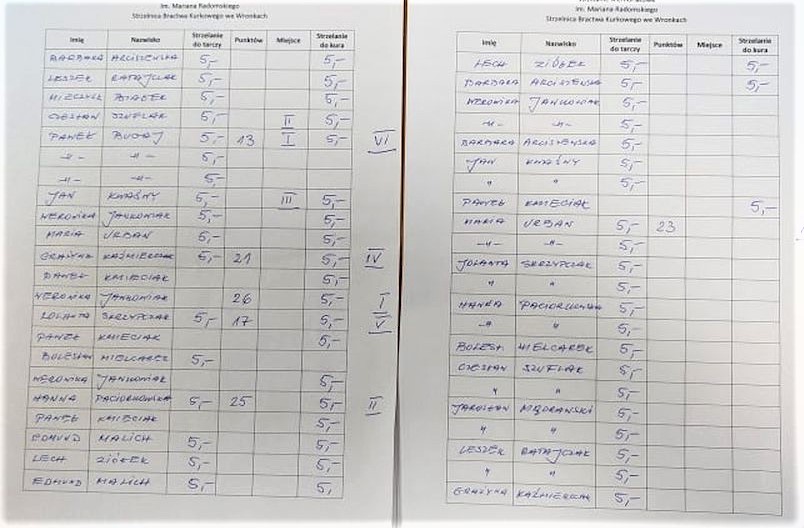 Im. Mariana Radomskiego
Strzelnica Bractwa Kurkowego we Wronkach
Imię Nazwisko Strzelanie do tarczy Punktów Miejsce Strzelanie do kura
BARBARA ARCISZEWSKA 5,- 5,-
LESZEK RATAJCZAK 5,- 5,-
MIECZYSŁ 5,- 5,-
CZESŁAW SZUFLAK 5,- II 5,-
PAWEŁ BUDAJ 5,- 13 I 5,- VI
-"- -"- 5,-
-"- -"- 5,-
JAN KWAŚNY 5,- III 5,-
WERONIKA JANKOWIAK 5,- 5,-
MARIA URBAN 5,- 5,-
GRAŻYNA KAŹMIERCZAK 5,- 21 5,- IV
PAWEŁ KMIECIAK 5,-
WERONIKA JANKOWIAK 26 5,- I
JOLANTA SKRZYPCZAK 5,- 17 5,- V
PAWEŁ KMIECIAK 5,-
BOLESŁAW MIELCAREK 5,-
WERONIKA JANKOWIAK 5,-
HANNA PACIORKOWSKA 5,- 25 5,- II
PAWEŁ KMIECIAK 5,-
EDMUND MALICH 5,- 5,-
LECH ZIÓŁEK 5,- 5,-
EDMUND MALICH 5,- 5,
Im. Mariana Radomskiego
Strzelnica Bractwa Kurkowego we Wronkach
Imię Nazwisko Strzelanie do tarczy Punktów Miejsce Strzelanie do kura
LECH ZIÓŁEK 5,- 5,-
BARBARA ARCISZEWSKA 5,- 5,-
WERONIKA JANKOWIAK 5,-
-"- -"- 5,-
BARBARA ARCISZEWSKA 5,-
JAN KWAŚNY 5,-
" " 5,-
PAWEŁ KMIECIAK 5,-
MARIA URBAN 5,- 23
-"- -"- 5,-
JOLANTA SKRZYPCZAK 5,-
" " 5,-
HANNA PACIORKOWSKA 5,-
-"- " 5,-
BOLESŁ MIELCAREK 5,-
CZESŁAW SZUFLAK 5,-
" " 5,-
JAROSŁAW MĄDRAWSKI 5,-
" " 5,-
LESZEK RATAJCZAK 5,-
" " 5,-
GRAŻYNA KAŹMIERCZAK 5,-